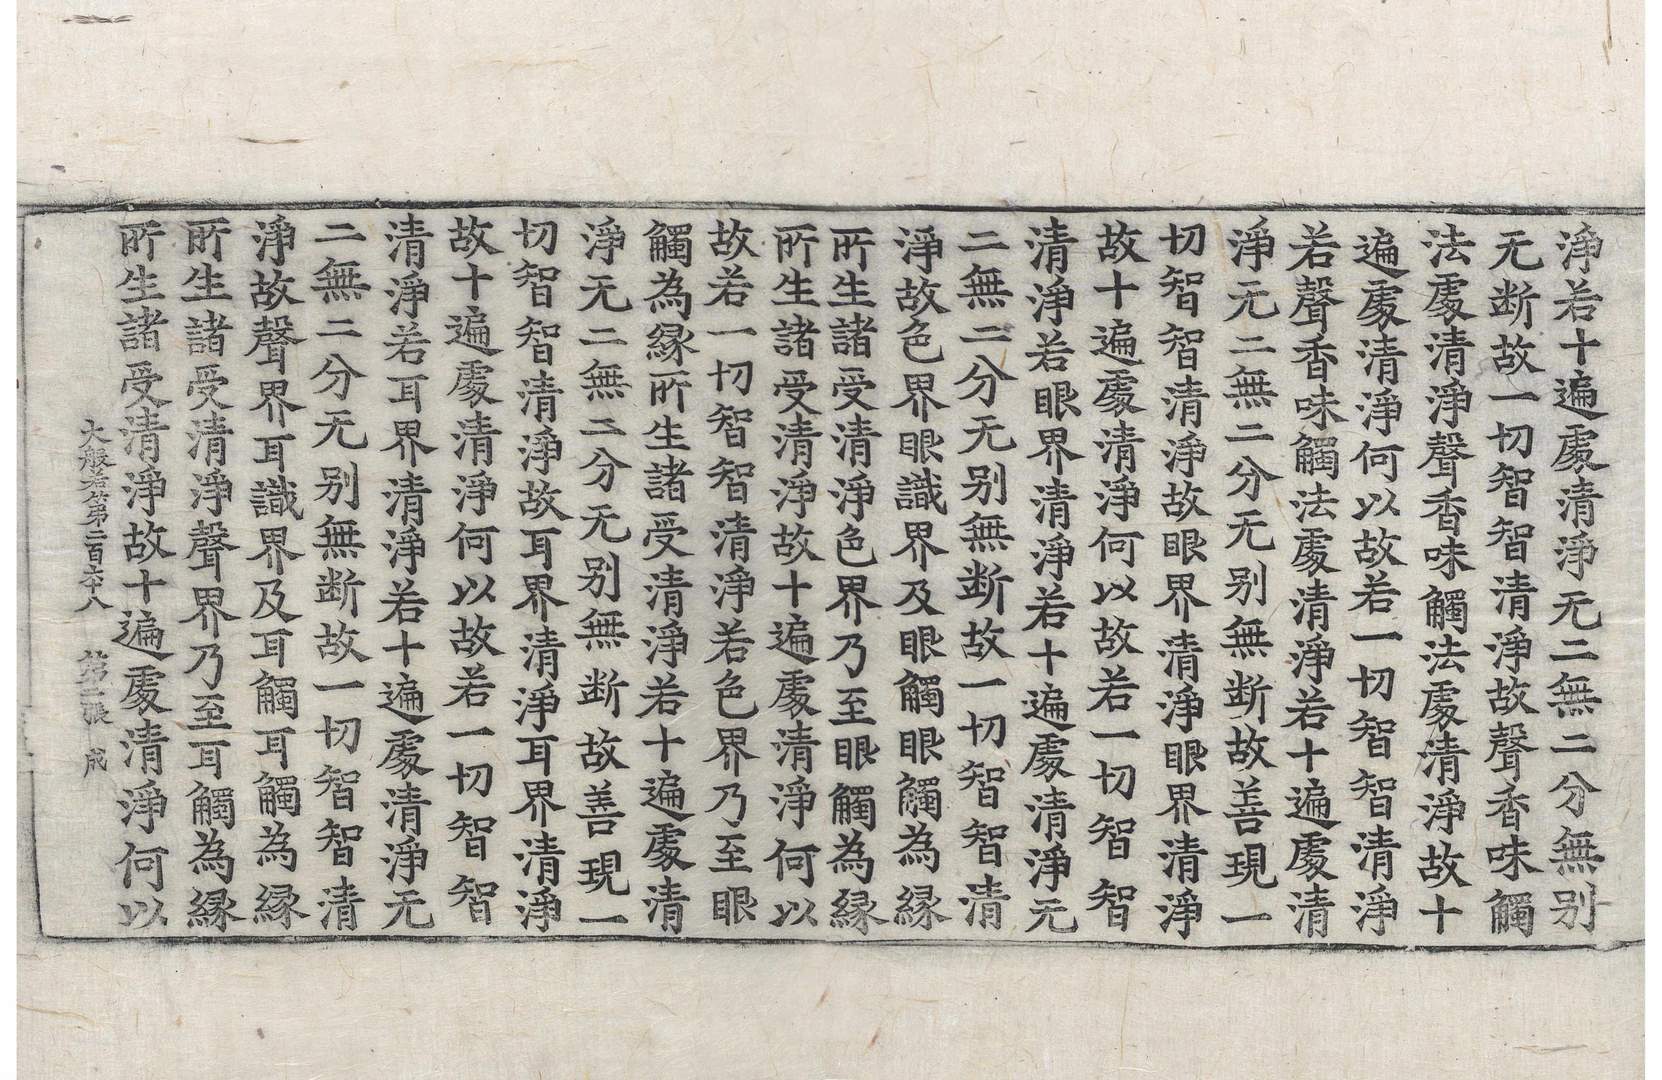 淨若十遍處清淨无二無二分無别
无断故一切智智清淨故聲香味觸
法處清淨聲香味觸法處清淨故十
遍處清淨何以故若一切智智清淨
若聲香味觸法處清淨若十遍處清
淨无二無二分无别無断故善現一
切智智清淨故眼界清淨眼界清淨
故十遍處清淨何以故若一切智智
清淨若眼界清淨若十遍處清淨无
二無二分无别無断故一切智智清
淨故色界眼識界及眼觸眼觸為縁
所生諸受清淨色界乃至眼觸為縁
所生諸受清淨故十遍處清淨何以
故若一切智智清淨若色界乃至眼
觸為縁所生諸受清淨若十遍處清
淨无二無二分无别無断故善現一
切智智清淨故耳界清淨耳界清淨
故十遍處清淨何以故若一切智智
清淨若耳界清淨若十遍處清淨无
二無二分无别無断故一切智智清
淨故聲界耳識界及耳觸耳觸為縁
所生諸受清淨聲界乃至耳觸為縁
所生諸受清淨故十遍處清淨何以
大般若第二百六十八 第二張 成